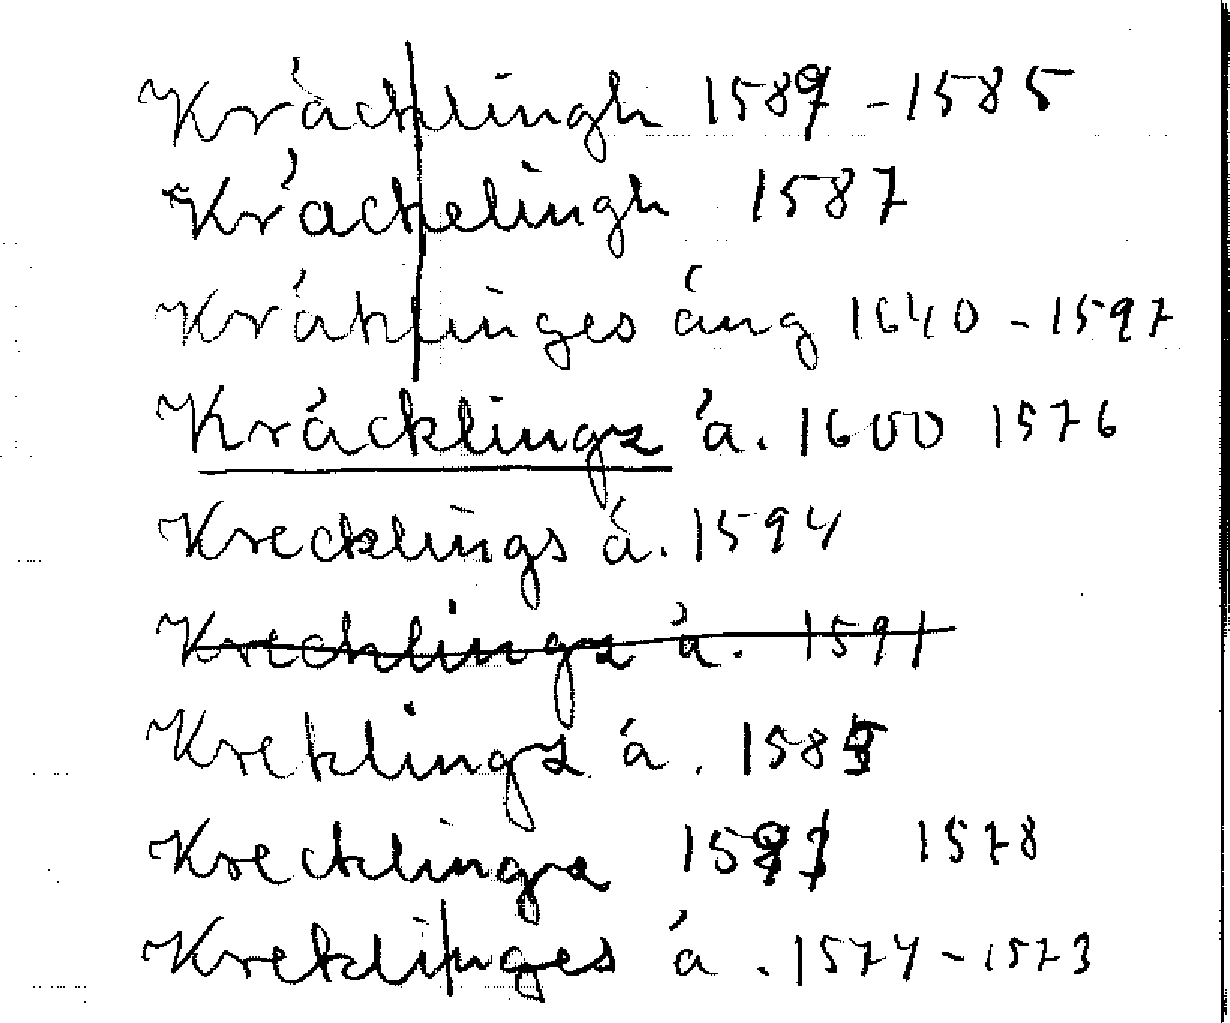 Kräcklingh 1589 - 1585
Kräckelingh 1587
Kräklinges äng 1640 - 1597
Kräcklingz å. 1600 1576
Krecklings å. 1594
Krecklingz å. 1591
Kreklingz å. 1585
Krecklinge 1578
Kreklinges å. 1574 - 1573